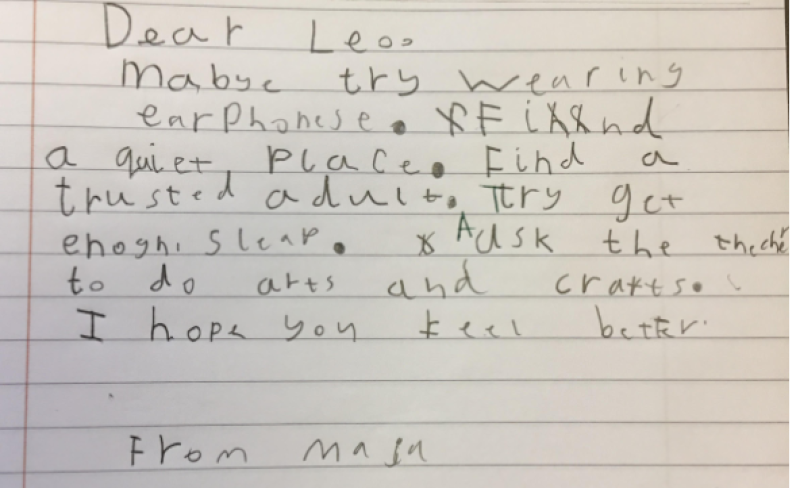 Dear Leo.
Mabye try wearing
earphonese. Find
a quiet place. Find a
trusted adult. Try get
enogh sleap. Ask the
to do arts and crafts.
I hope you feel better.
From